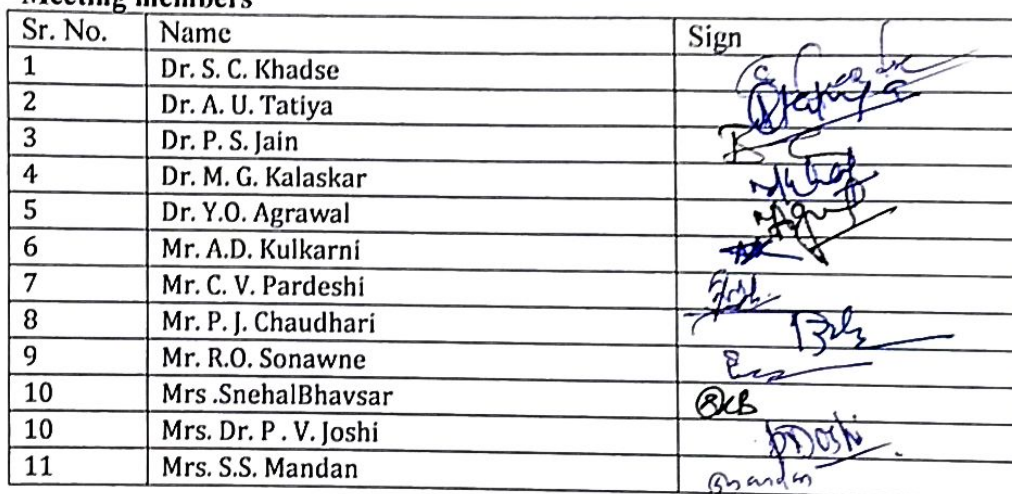 Meeting members
Sr. No. Name Sign
1 Dr. S. C. Khadse
2 Dr. A. U. Tatiya
3 Dr. P. S. Jain
4 Dr. M. G. Kalaskar
5 Dr. Y.O. Agrawal
6 Mr. A.D. Kulkarni
7 Mr. C. V. Pardeshi
8 Mr. P. J. Chaudhari
9 Mr. R.O. Sonawne
10 Mrs .SnehalBhavsar
10 Mrs. Dr. P . V. Joshi
11 Mrs. S.S. Mandan